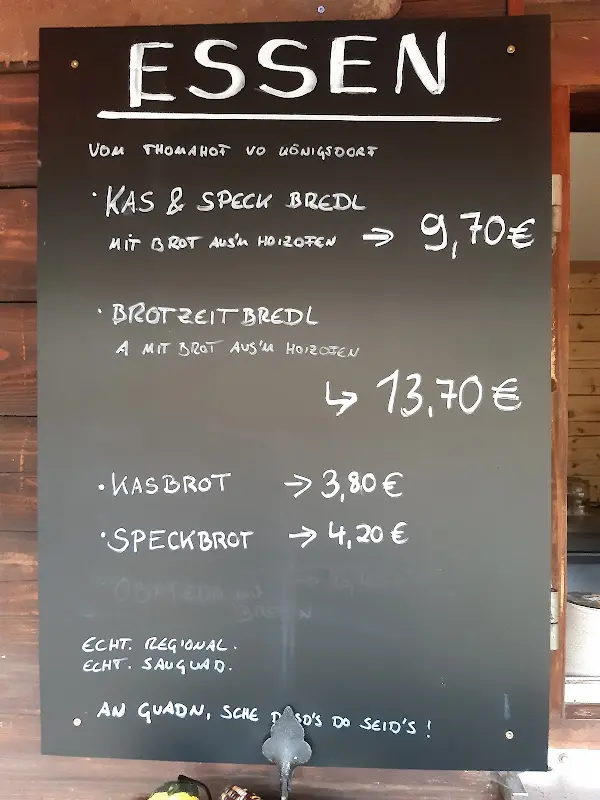 ESSEN
VOM THOMAHOF VO KÖNIGSDORF
· KAS & SPECK BREDL
MIT BROT AUS'M HOIZOFEN → 9,70 €
· BROTZEIT BREDL
A MIT BROT AUS'M HOIZOFEN
↳ 13,70 €
· KASBROT → 3,80 €
· SPECKBROT → 4,20 €
ECHT. REGIONAL.
ECHT. SAUGUAD.
AN GUADN, SCHE DO SEID'S !